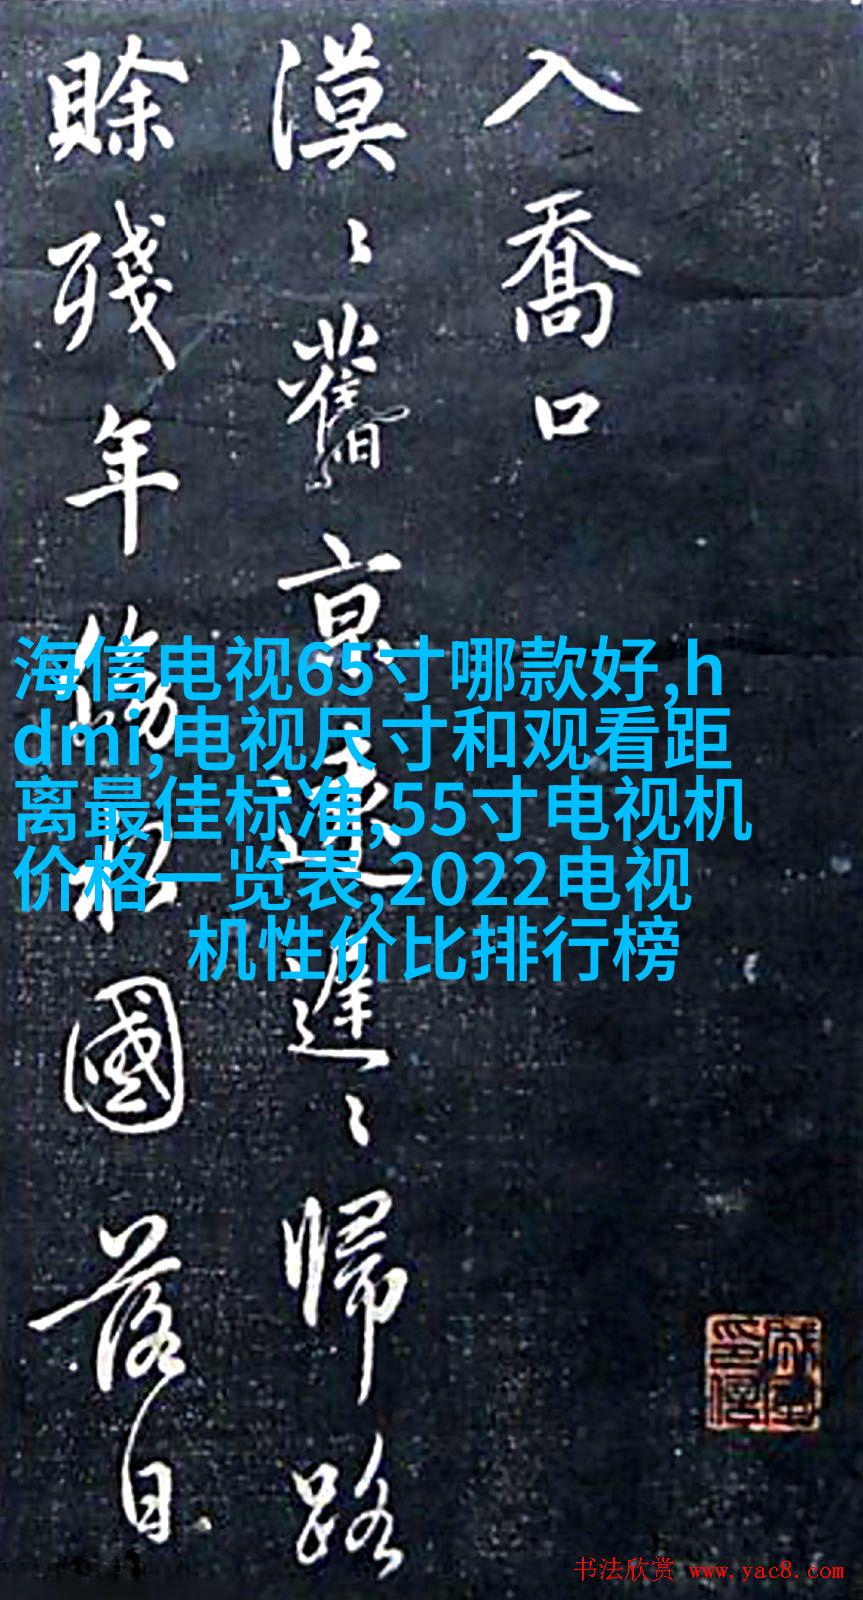 入喬口
漠〻舊京遠遲〻歸路
賖殘年傍水國落日
海信电视65寸哪款好,h
dmi,电视尺寸和观看距
离最佳标准,55寸电视机
价格一览表,2022电视
机性价比排行榜
书法欣赏 www.yac8.com